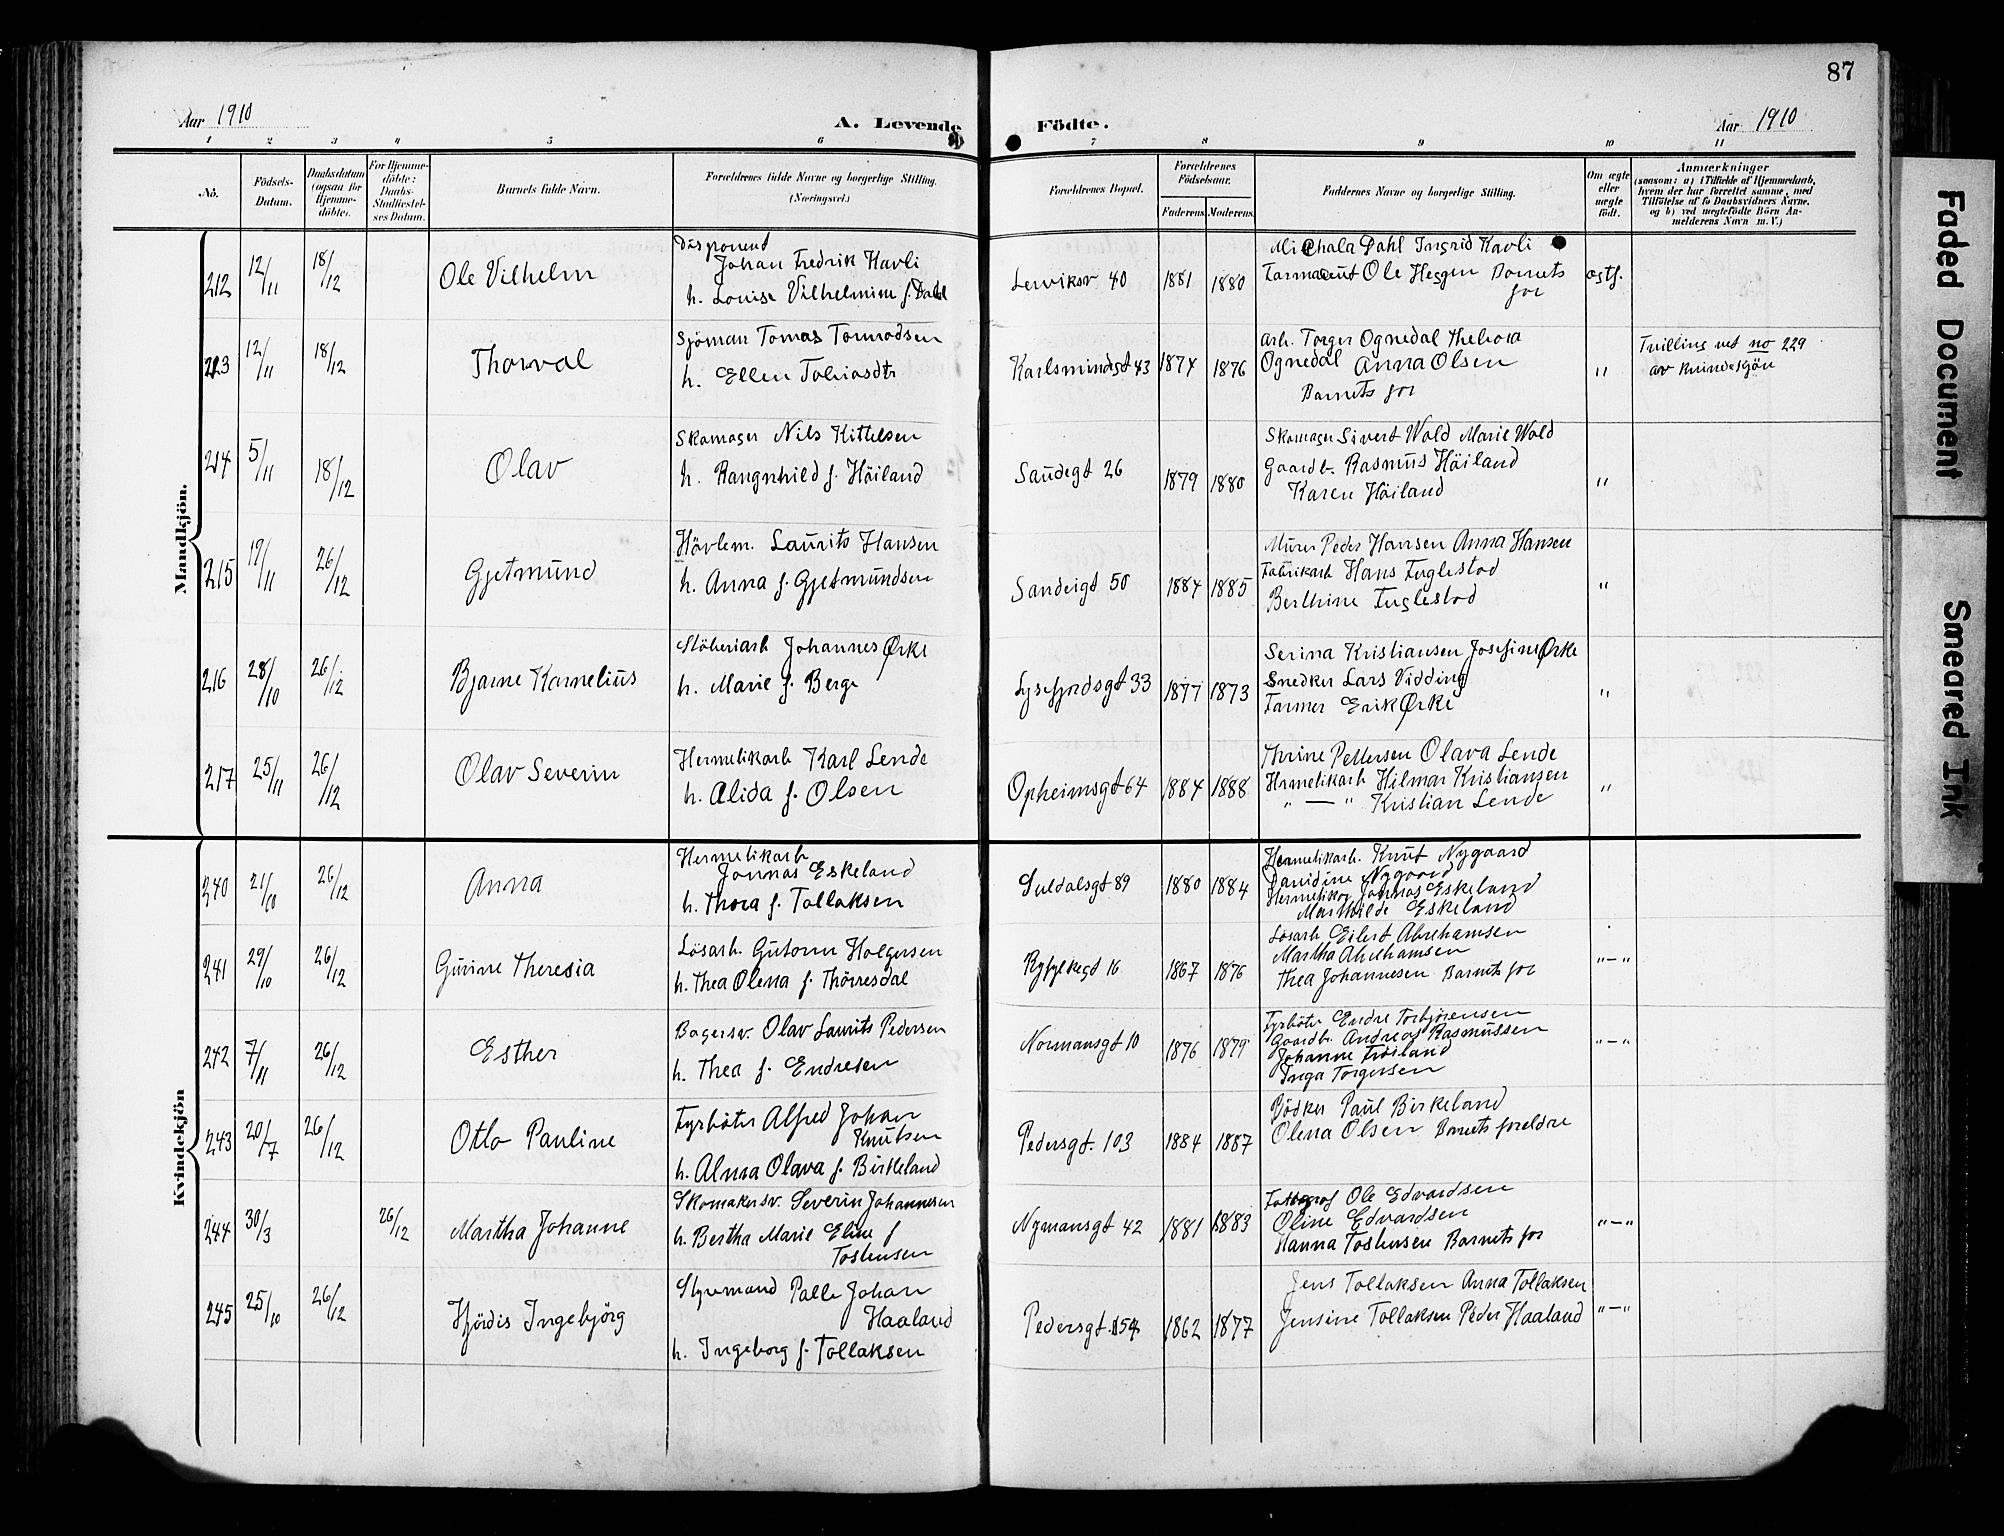 87
Aar 1910
A. Levende Födte.
Aar 1910
1 2 3 4 5 6 7 8 9 10 11
No.
Födsels-Datum.
Daabsdatum (ogsaa for Hjemme-döbte).
For Hjemme-döbte: Daabs-Stadfæstel-ses Datum.
Barnets fulde Navn.
Forældrenes fulde Navne og borgerlige Stilling.
(Næringsvei.)
Forældrenes Bopæl.
Forældrenes Födselsaar.
Faderens. Moderens.
Faddernes Navne og borgerlige Stilling.
Om ægte eller uægte födt.
Anmærkninger
(saasom: a) i Tilfælde af Hjemmedaab,
hvem der har forrettet samme, med
Tilföielse af to Daabsvidners Navne,
og b) ved uægtefödte Börn An-
melderens Navn m. V.)
Mandkjön.
212 12/11 18/12 Ole Vilhelm
Disponent
Johan Fredrik Havli
h. Louise Vilhelmine f. Dahl
Lerviksv 40 1881 1880
Michala Dahl Ingrid Havli
Farmaceut Ole Heggen Barnets
for
ægtf.
213 12/11 18/12 Thorval
Sjöman Tomas Tormodsen
h. Ellen Tobiasdtr
Karlsmindegt 43 1874 1876
Arb. Torger Ognedal Thebora
Ognedal Anna Olsen
Barnets for
"
Tvilling vet no 229
av kvindekjön
214 5/11 18/12 Olav
Skomager Nils Kittelsen
h. Rangnhild f. Höiland
Sandegt 26 1879 1880
Skomager Sivert Wold Marie Wold
Gaardb. Rasmus Höiland
Karen Höiland
"
215 19/11 26/12 Gjetmund
Hövlem. Laurits Hansen
h. Anna f. Gjetmundsen
Sandeigt 50 1884 1885
Murer Peder Hansen Anna Hansen
Fabrikarb Hans Fuglestad
Berthine Fuglestad
"
216 28/10 26/12 Bjarne Kornelius
Stöberiarb Johannes Ørke
h. Marie f. Berge
Lysefjordsgt 33 1877 1873
Serina Kristiansen Josefine Ørke
Snedker Lars Vidding
Farmer Erik Ørke
"
217 25/11 26/12 Olav Severin
Hermetikarb Karl Lende
h. Alida f. Olsen
Opheimsgt 64 1884 1888
Thrine Pettersen Olava Lende
Hermetikarb Hilmar Kristiansen
" — " Kristian Lende
"
Kvindekjön
240 21/10 26/12 Anna
Hermetikarb
Jonnas Eskeland
h. Thora f. Tollaksen
Suldalsgt 89 1880 1884
Hermetikarb. Knut Nygaard
Davidine Nygaard
Hermetikar Jonnas Eskeland
Marthilde Eskeland
241 29/10 26/12 Gurine Theresia
Lösarb. Gutorm Holgersen
h. Thea Olena f. Thörresdal
Ryfylkegt 16 1867 1876
Lösarb Eilert Abrahamsen
Martha Abrahamsen
Thea Johannesen Barnets for
"—"
242 7/11 26/12 Esther
Bagersv. Olav Laurits Pedersen
h. Thea f. Endresen
Normansgt 10 1876 1879
Fyrböter Endre Torbjörensen
Gaardbr. Andreas Rasmussen
Johanne Fröiland
Inga Torgersen
"—"
243 20/7 26/12 Otlo Pauline
Fyrböter Alfred Johan
Knutsen
h. Alma Olava f. Birkeland
Pedersgt. 103 1884 1887
Bödker Paul Birkeland
Olena Olsen Barnets foreldre
244 30/3 26/12 Martha Johanne
Skomakersv. Severin Johannesen
h. Bertha Marie Eline f
Tostensen
Nymansgt 42 1881 1883
Fotograf Ole Edvardsen
Oline Edvardsen
Hanna Tostensen Barnets for
"—"
245 25/10 26/12 Hjördis Ingebjörg
Styrmand Palle Johan
Haaland
h. Ingeborg f. Tollaksen
Pedersgt. 154 1862 1877
Jens Tollaksen Anna Tollaksen
Jensine Tollaksen Peder Haaland
"—"
Faded Document
Smeared Ink